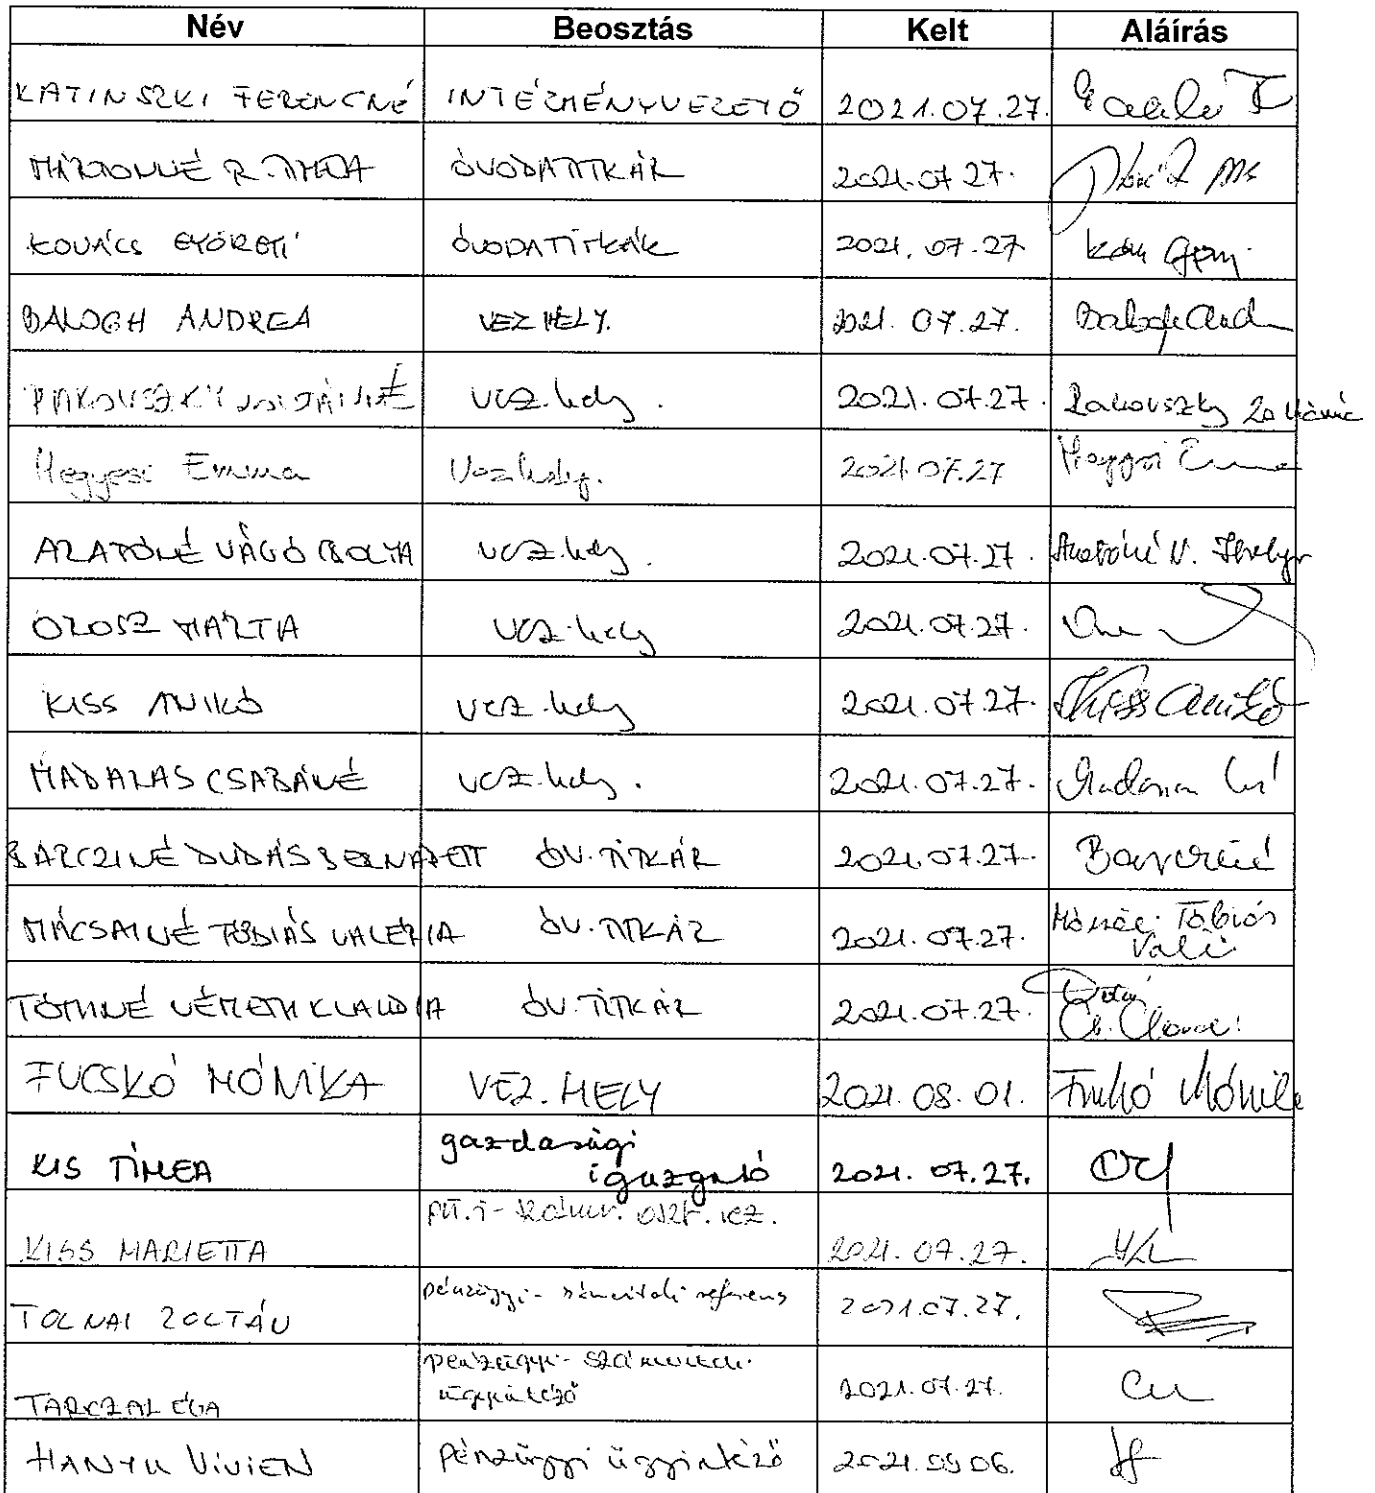 Név Beosztás Kelt Aláírás
KATINSZKI FERENCNÉ INTÉZMÉNYVEZETŐ 2021.07.27.
MÁRTONNÉ R. TIMEA ÓVODATITKÁR 2021.07.27.
KOVÁCS GYÖRGYI ÓVODATITKÁR 2021.07.27
BALOGH ANDREA VEZ HELY. 2021.07.27. Balogh And
RAKOVSZKY ZOLTÁNNÉ vez.hely. 2021.07.27. Rakovszky Zoltánné
Hegyesi Emma Vez.hely. 2021.07.27 Hegyesi Emma
ARATÓNÉ VÁGÓ IBOLYA vez.hely. 2021.07.27. Aratóné V. Ibolya
OROSZ MÁRTA vez.hely 2021.07.27.
KISS ANIKÓ vez.hely 2021.07.27. Kiss Anikó
MADARAS CSABÁNÉ vez.hely. 2021.07.27.
BARCZINÉ DUDÁS BERNADETT ÓV.TITKÁR 2021.07.27. Barcziné
MÁCSAINÉ TÓBIÁS VALÉRIA ÓV.TITKÁR 2021.07.27. Tóbiás
Vali
TÓTHNÉ NÉMETH KLAUDIA ÓV.TITKÁR 2021.07.27.
FUCSKÓ MÓNIKA VEZ.HELY 2021.08.01. Fucskó Mónika
KIS TÍMEA gazdasági
igazgató 2021.07.27.
KISS MARIETTA 2021.07.27.
TOLNAI ZOLTÁN pénzügyi-számviteli referens 2021.07.27.
TARCZAL ÉVA pénzügyi-számviteli
ügyintéző 2021.07.27.
HANYU VIVIEN pénzügyi ügyintéző 2021.09.06.